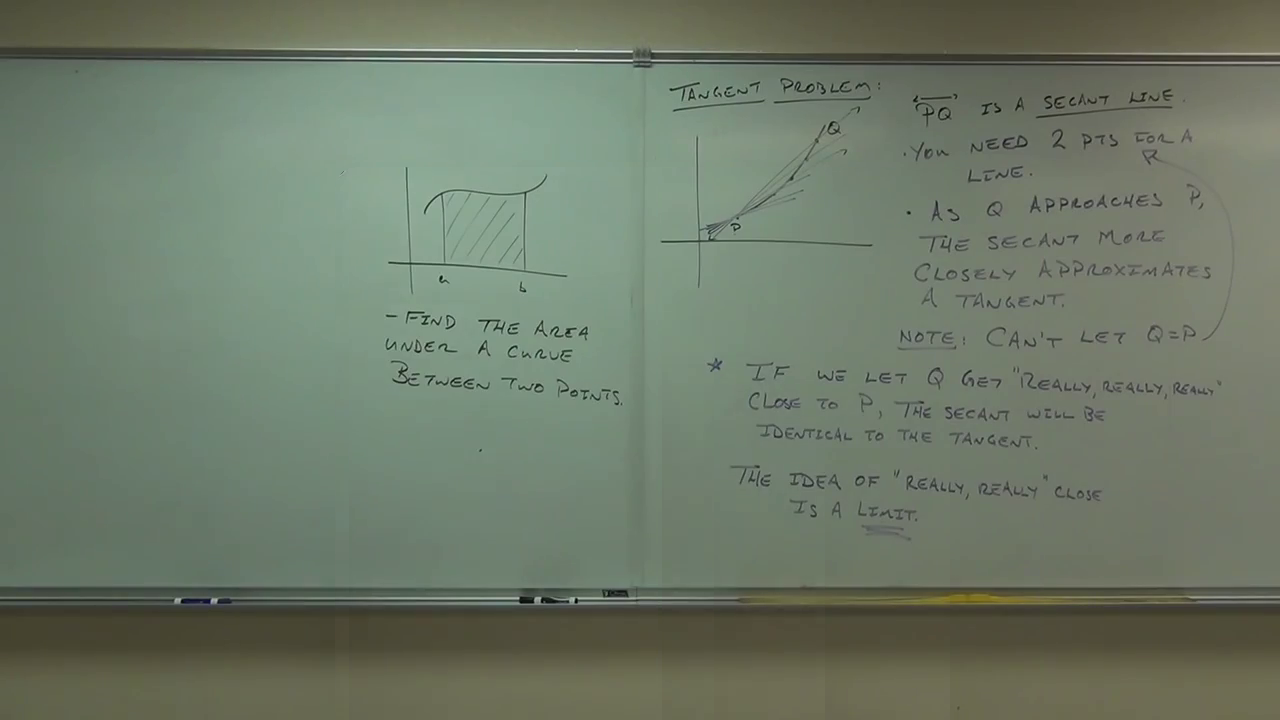 a b
- FIND THE AREA
UNDER A CURVE
BETWEEN TWO POINTS.
TANGENT PROBLEM:
Q
P
PQ IS A SECANT LINE.
· YOU NEED 2 PTS FOR A
LINE.
· AS Q APPROACHES P,
THE SECANT MORE
CLOSELY APPROXIMATES
A TANGENT.
NOTE: CAN'T LET Q=P
* IF WE LET Q GET "REALLY, REALLY, REALLY"
CLOSE TO P, THE SECANT WILL BE
IDENTICAL TO THE TANGENT.
THE IDEA OF "REALLY, REALLY" CLOSE
IS A LIMIT.